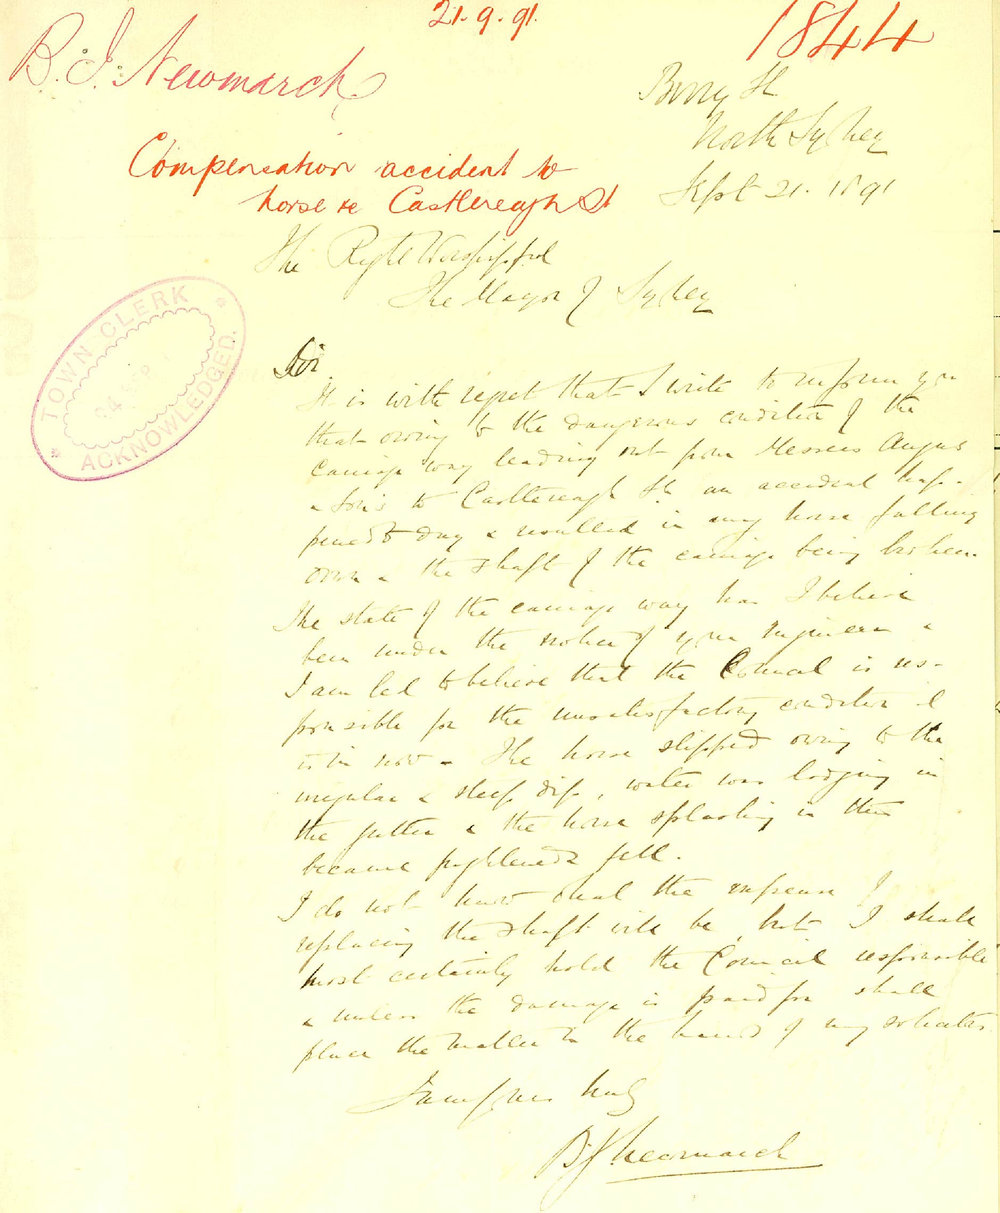 21.9.91.
1844
B. J. Newmarch
Berry St
North Sydney
Sept 21. 1891
Compensation accident to
horse re Castlereagh St
The Right Worshipful
The Mayor of Sydney
TOWN CLERK
24 SEP
ACKNOWLEDGED.
Sir
It is with regret that I write to inform you
that owing to the dangerous condition of the
carriage way leading out from Messrs Angus
& Son's to Castlereagh St an accident hap-
pened to day & resulted in my horse falling
down & the shaft of the carriage being broken.
The state of the carriage way has I believe
been under the notice of your Engineers &
I am led to believe that the Council is res-
ponsible for the unsatisfactory condition it
is in now - The horse slipped owing to the
irregular & steep dip, water was lodging in
the gutter & the horse splashing in this
became frightened & fell.
I do not know what the expense of
replacing the shaft will be, but I shall
most certainly hold the Council responsible
& unless the damage is paid for shall
place the matter in the hands of my solicitor
I am yours truly
B J Newmarch